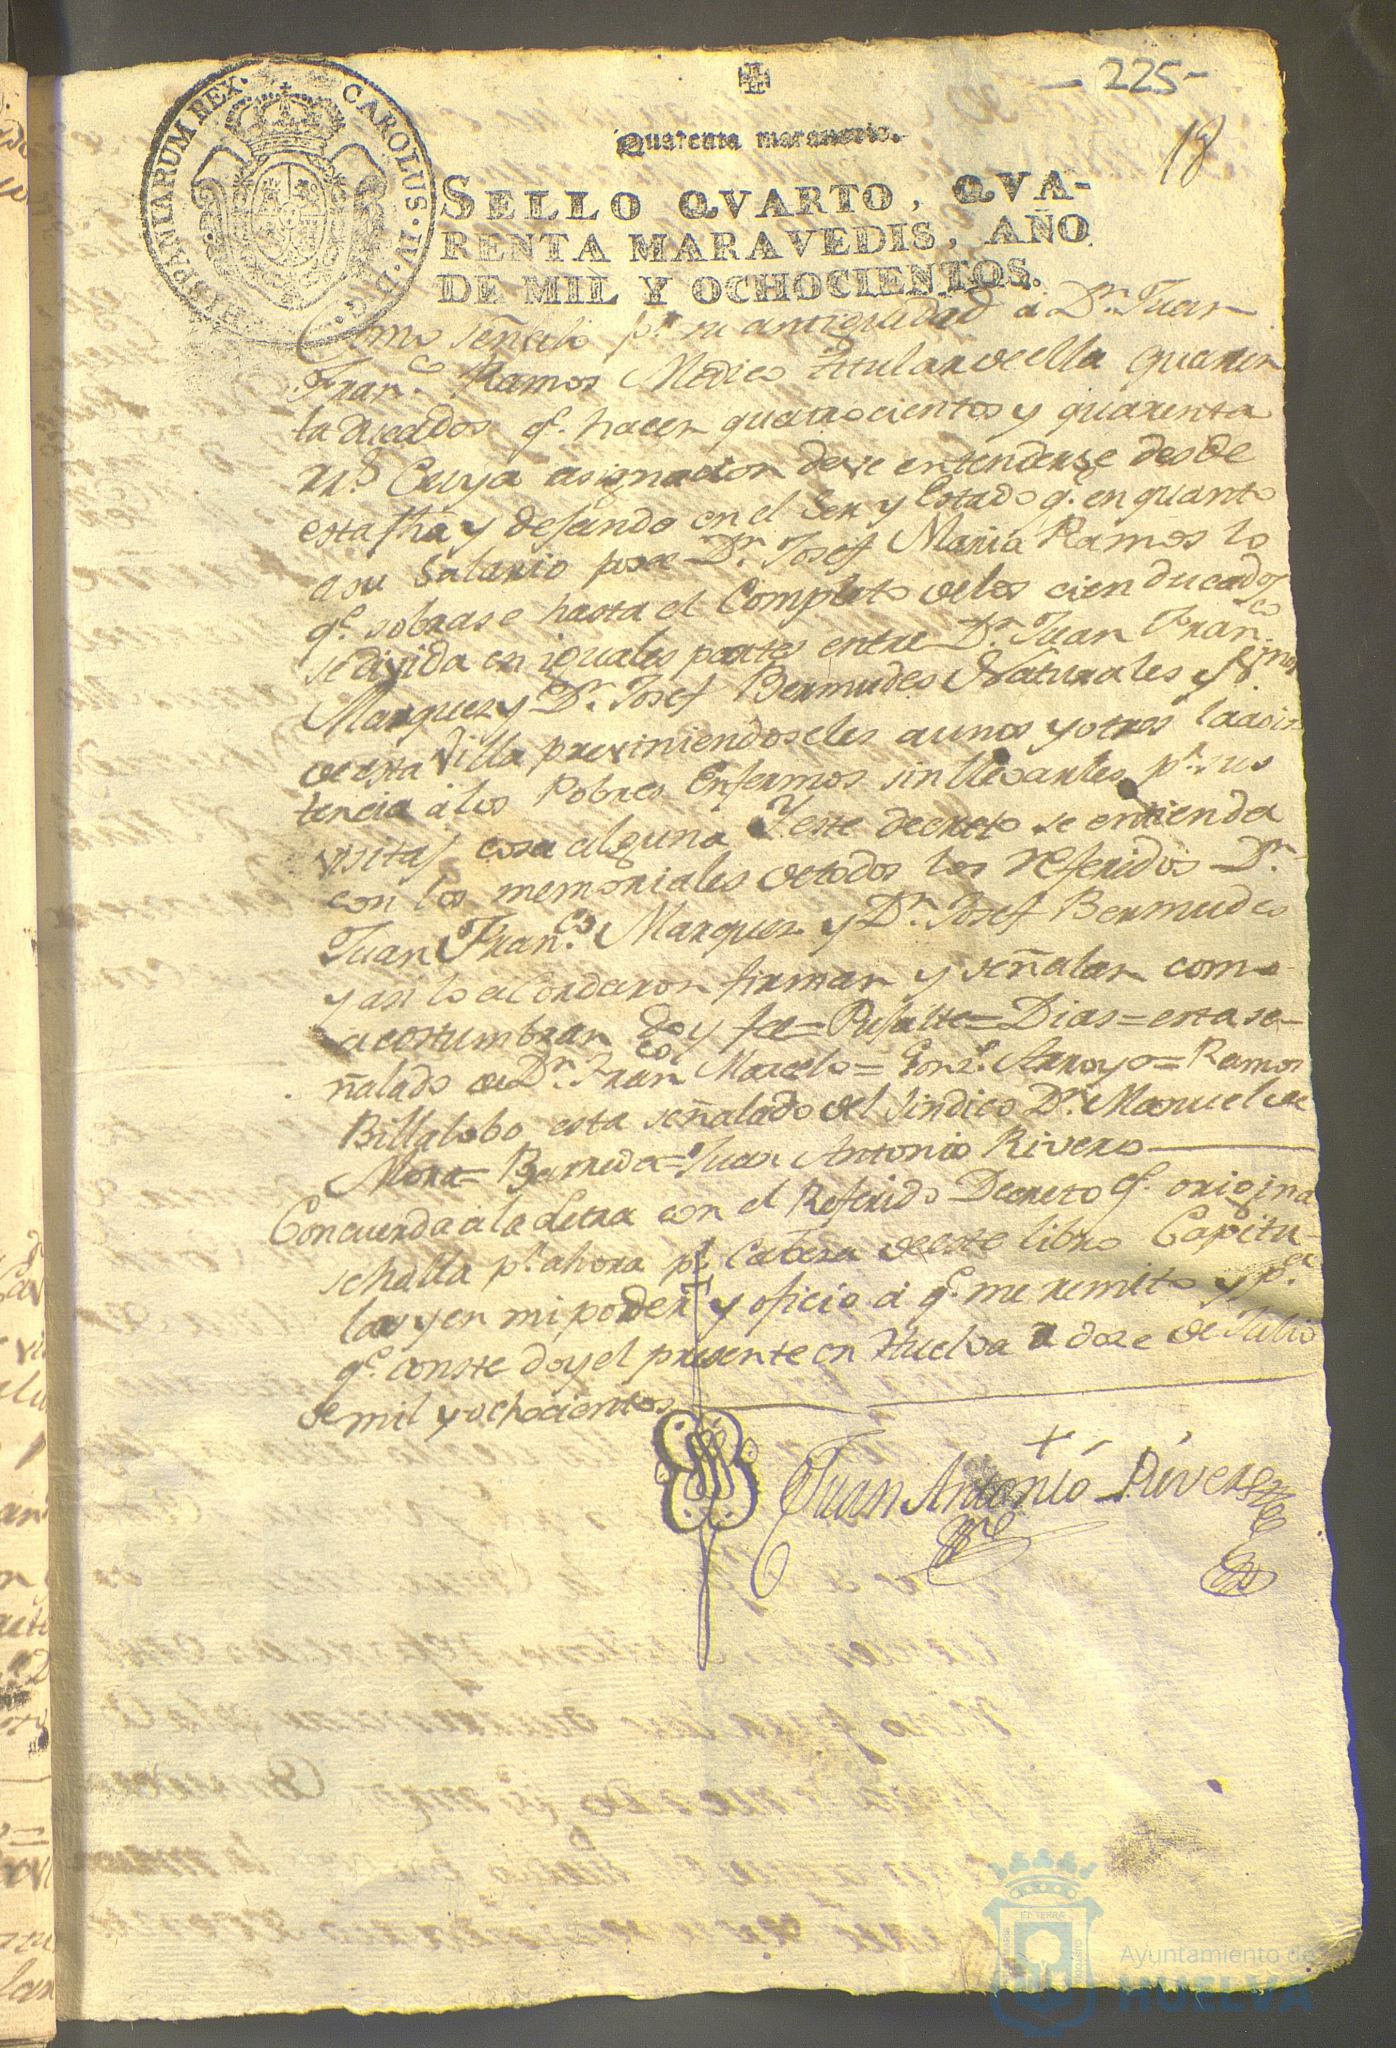 - 225-
18
Quarenta maravedis.
HISPANIARUM REX. CAROLUS. IV. D. G.
SELLO QVARTO, QVA-
RENTA MARAVEDIS, AÑO
DE MIL Y OCHOCIENTOS.
Como señalo pr. su antiguedad a Dn. Juan
Franco. Ramos Medico titular de ella quaren
ta ducados q. hacen quatrocientos y quarenta
rrs. Cuya asignacion deve entenderse desde
esta fha y dejando en el Ser y Estado q. en quanto
a su Salario pose Dn. Josef Maria Ramos lo
q. sobrase hasta el Completo delos cien ducados
se divida en iguales partes entre Dn. Juan Franco.
Marquez y Dn. Josef Bermudes Naturales y
de esta Villa previniendoseles a unos y otros la acis
tencia a los Pobres Enfermos sin llevarles pr. sus
visitas cosa alguna Y este decreto se entienda
con los memoriales de todos los referidos Dn.
Juan Franco. Marquez y Dn. Josef Bermudes
y asi lo acordaron firmar y señalar como
acostumbran doy fe = Pusalte = Dias = esta se-
ñalado de Dn. Franco. Marcelo = Gonz. Arroyo = Ramos
Billalobo esta señalado del Sindico Dn. Manuel de
Mora = Barreda = Juan Antonio Rivero
Concuerda a la Letra con el Referido Decreto q. origina
se halla pr. ahora pr. Cabeza de este libro Capitu-
lar y en mi poder y oficio a q. me remito y pa.
q. conste doy el presente en Huelva a dose de Julio
de mil y ochocientos
Juan Antonio Rivero
Ayuntamiento de
HUELVA